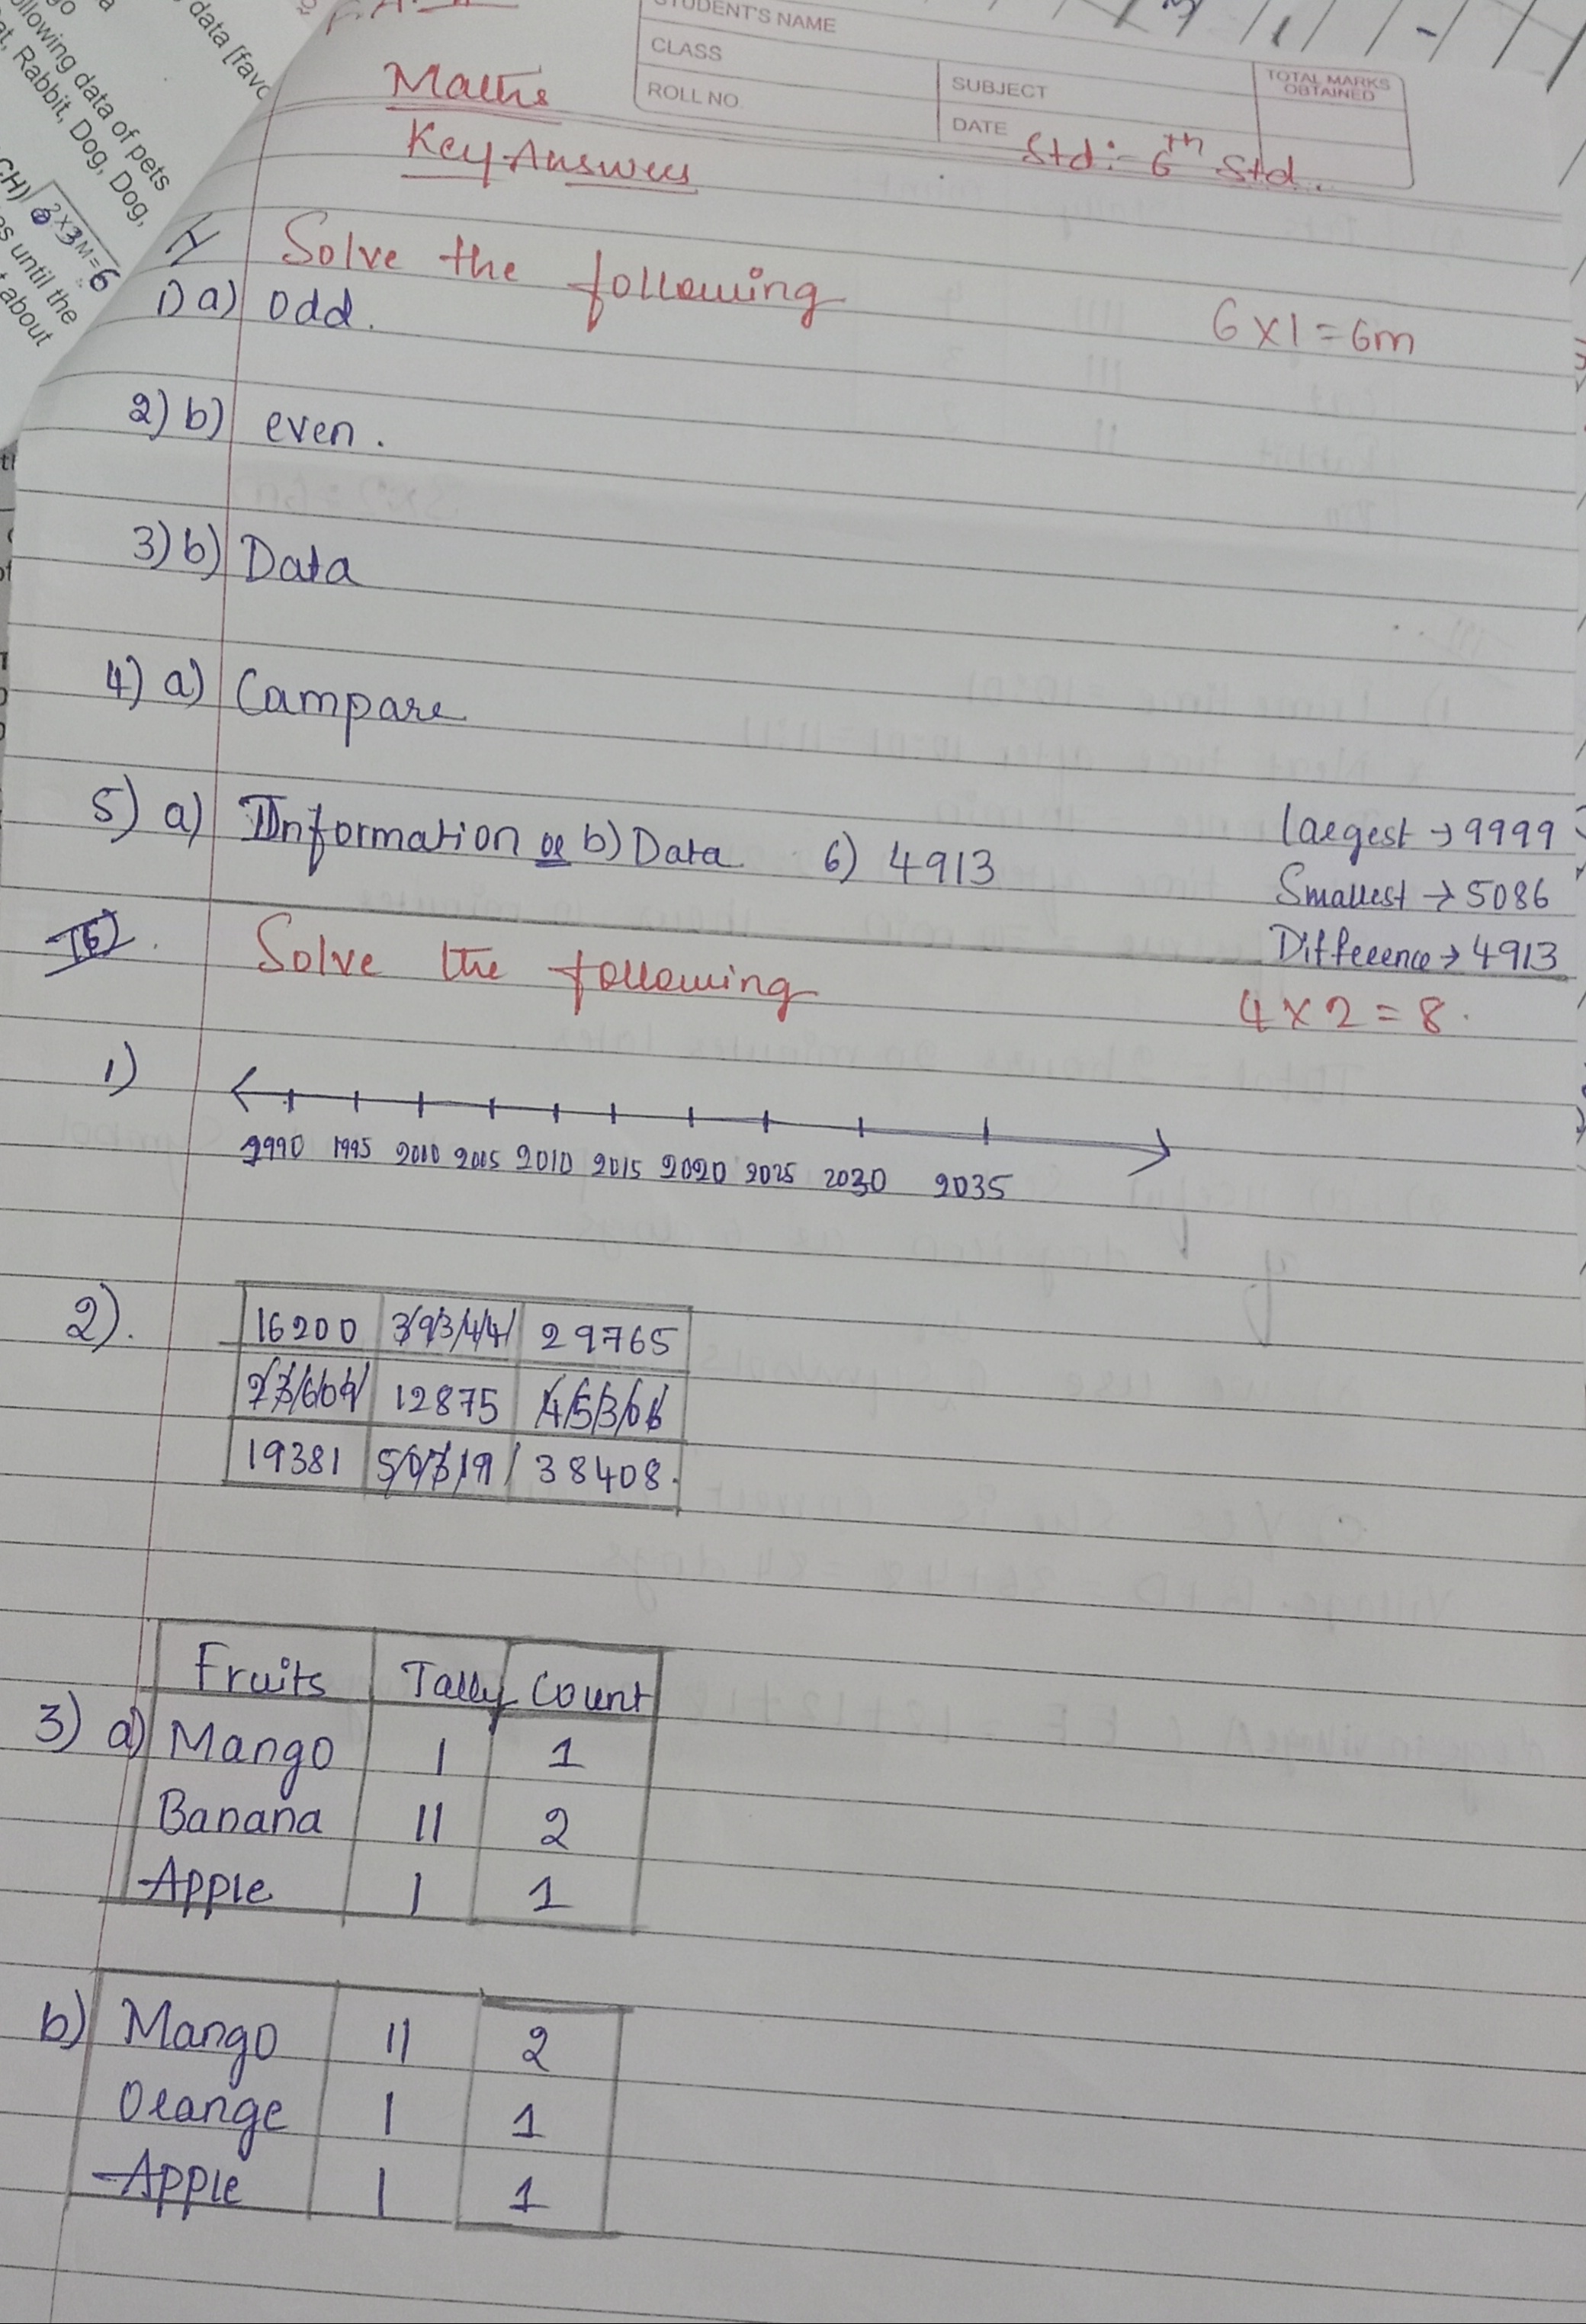 data [favo
ollowing data of pets
at, Rabbit, Dog, Dog,
CH)] 2x3M=6
s until the
about
STUDENT'S NAME
CLASS
ROLL NO.
SUBJECT
DATE
TOTAL MARKS OBTAINED
Maths
Key Answers
Std:- 6th Std.
Solve the following
6x1=6m
1) a) odd.
2) b) even.
3) b) Data
4) a) Campare
5) a) Information or b) Data 6) 4913
largest → 9999
Smallest → 5086
Difference → 4913
Solve the following
4x2=8.
1)
1990 1995 2000 2005 2010 2015 2020 2025 2030 2035
2).
16200 39344 29765
23609 12875 45306
19381 50319 38408.
Fruits Tally Count
3) a) Mango | 1
Banana || 2
Apple | 1
b) Mango || 2
Orange | 1
Apple | 1